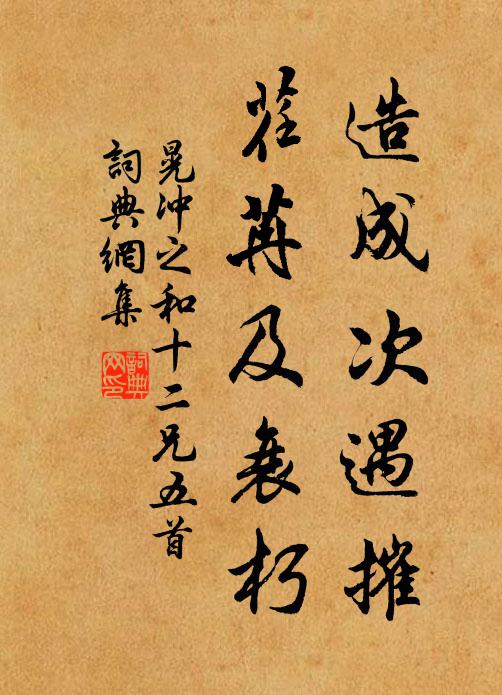 造成次遇摧
荏苒及衰朽
晁冲之和十二兄五首
詞典網集
詞典网印